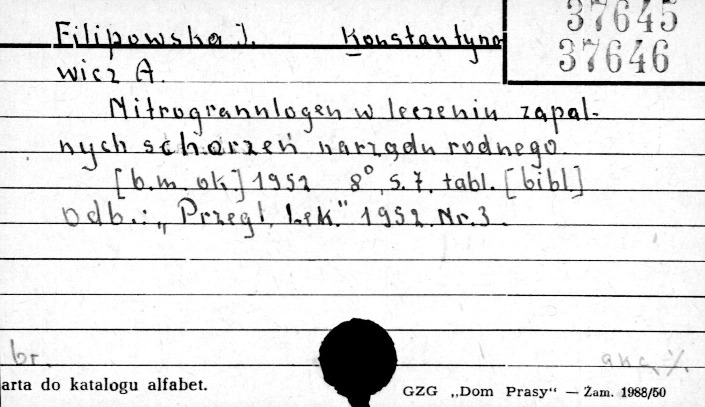 37645
37646
Filipowska J. Konstantyno
wicz A.
Nitrogrannlogen w leczeniu zapal-
nych schorzeń narządu rodnego
[b.m. ok.] 1952 8°, s. 7. tabl. [bibl]
odb.: „Przegl. Lek." 1952. Nr. 3.
br.
arta do katalogu alfabet.
GZG „Dom Prasy“ — Żam. 1988/50